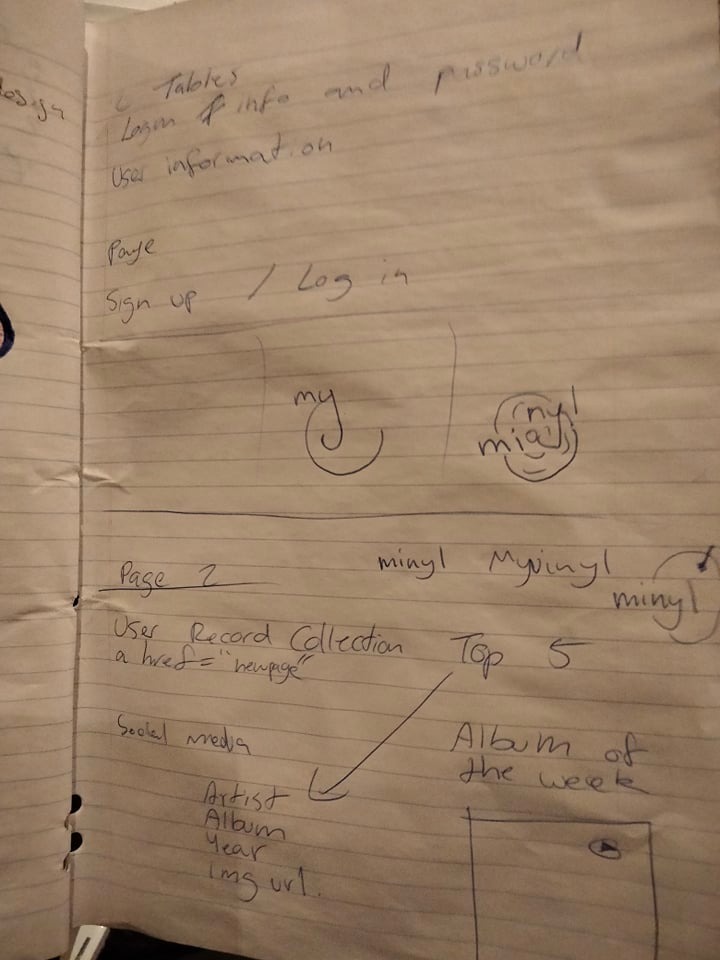 design
Tables
Login info and password
User information
Page
Sign up / Log in
my
minyl
minyl Myvinyl
minyl
Page 2
User Record Collection
a href="newpage"
Top 5
Social media
Album of
the week
Artist
Album
Year
Img url.